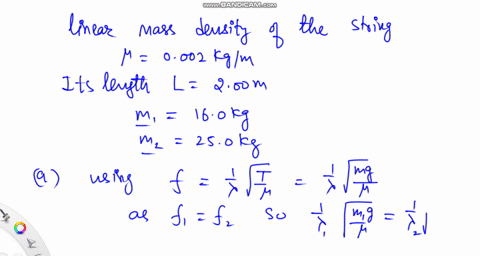 WWW.BANDICAM.COM
linear mass density of the string
μ = 0.002 kg/m
Its length L = 2.00m
m₁ = 16.0 kg
m₂ = 25.0 kg
(a) using f = 1/λ √(T/μ) = 1/λ √(mg/μ)
as f₁ = f₂ so 1/λ₁ √(m₁g/μ) = 1/λ₂ √